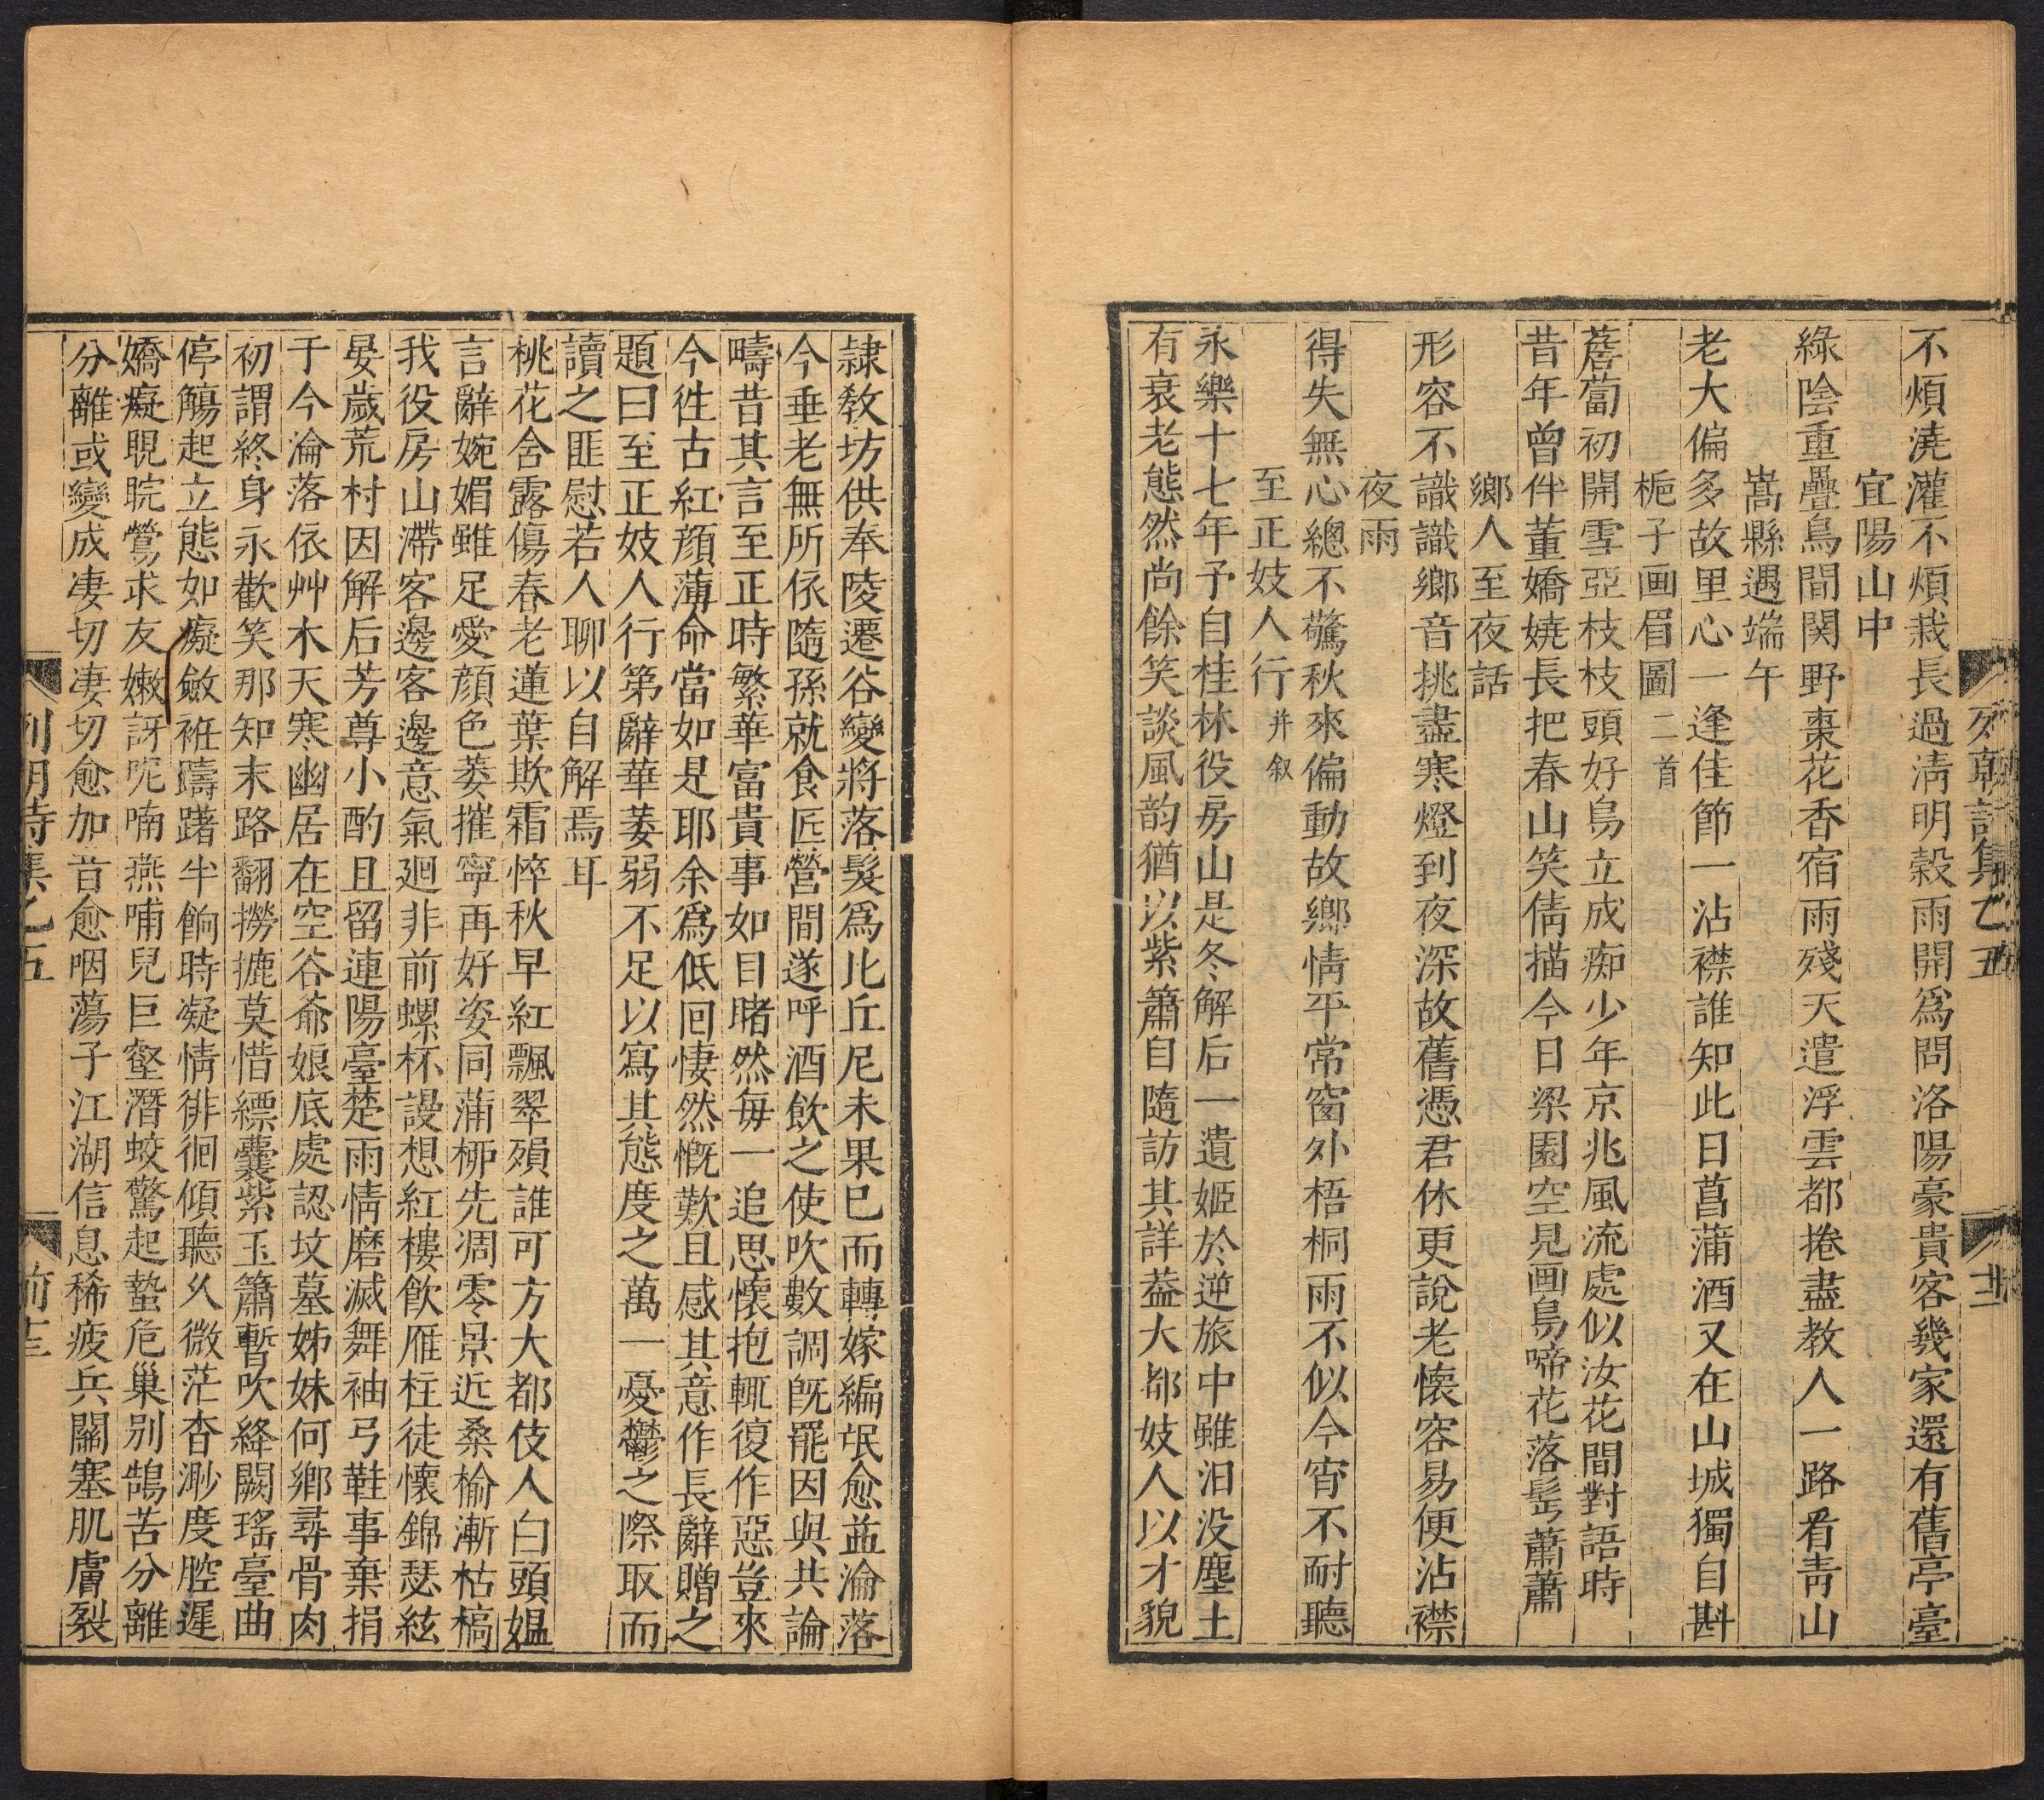 不煩澆灌不煩栽長過淸明穀雨開爲問洛陽豪貴客幾家還有舊亭臺
宜陽山中
綠陰重疊鳥間関野棗花香宿雨殘天遣浮雲都捲盡教人一路看靑山
嵩縣遇端午
老大偏多故里心一逢佳節一沾襟誰知此日菖蒲酒又在山城獨自斟
梔子画眉圖二首
薝蔔初開雪亞枝枝頭好鳥立成痴少年京兆風流處似汝花間對語時
昔年曾伴董嬌嬈長把春山笑倩描今日梁園空見画鳥啼花落髩蕭蕭
鄉人至夜話
形容不識識鄉音挑盡寒燈到夜深故舊憑君休更說老懐容易便沾襟
夜雨
得失無心總不驚秋來偏動故鄉情平常窗外梧桐雨不似今宵不耐聽
至正妓人行并叙
永樂十七年予自桂林役房山是冬解后一遺姬於逆旅中雖汨没塵土
有衰老態然尚餘笑談風韵猶以紫簫自隨訪其詳葢大都妓人以才貌
列朝詩集乙五
隷敎坊供奉陵遷谷變將落髮爲比丘尼未果已而轉嫁編氓愈益淪落
今垂老無所依隨孫就食匠營間遂呼酒飲之使吹數調旣罷因與共論
疇昔其言至正時繁華富貴事如目睹然每一追思懷抱輒復作惡豈來
今徃古紅顔薄命當如是耶余爲低回悽然慨歎且感其意作長辭贈之
題曰至正妓人行第辭華萎弱不足以寫其態度之萬一憂鬱之際取而
讀之匪慰若人聊以自解焉耳
桃花舍露傷春老蓮葉欺霜悴秋早紅飄翠殞誰可方大都伎人白頭媼
言辭婉媚雖足愛顔色萎摧寧再好姿同蒲柳先凋零景近桑榆漸枯槁
我役房山滯客邊客邊意氣廻非前螺杯謾想紅樓飲雁柱徒懷錦瑟絃
晏歲荒村因解后芳尊小酌且留連陽臺楚雨情磨滅舞袖弓鞋事棄捐
于今淪落依艸木天寒幽居在空谷爺娘底處認坟墓姊妹何鄉尋骨肉
初謂終身永歡笑那知末路翻撈摝莫惜縹囊紫玉簫暫吹絳闕瑤臺曲
停觴起立態如癡斂袵躊躇半餉時凝情徘徊傾聽乆微茫杳渺度腔遲
嬌癡睍睆鶯求友嫩訝呢喃燕哺兒巨壑潛蛟驚起蟄危巢别鵠苦分離
分離或變成凄切凄切愈加音愈咽蕩子江湖信息稀疲兵關塞肌膚裂
列朝詩集乙五